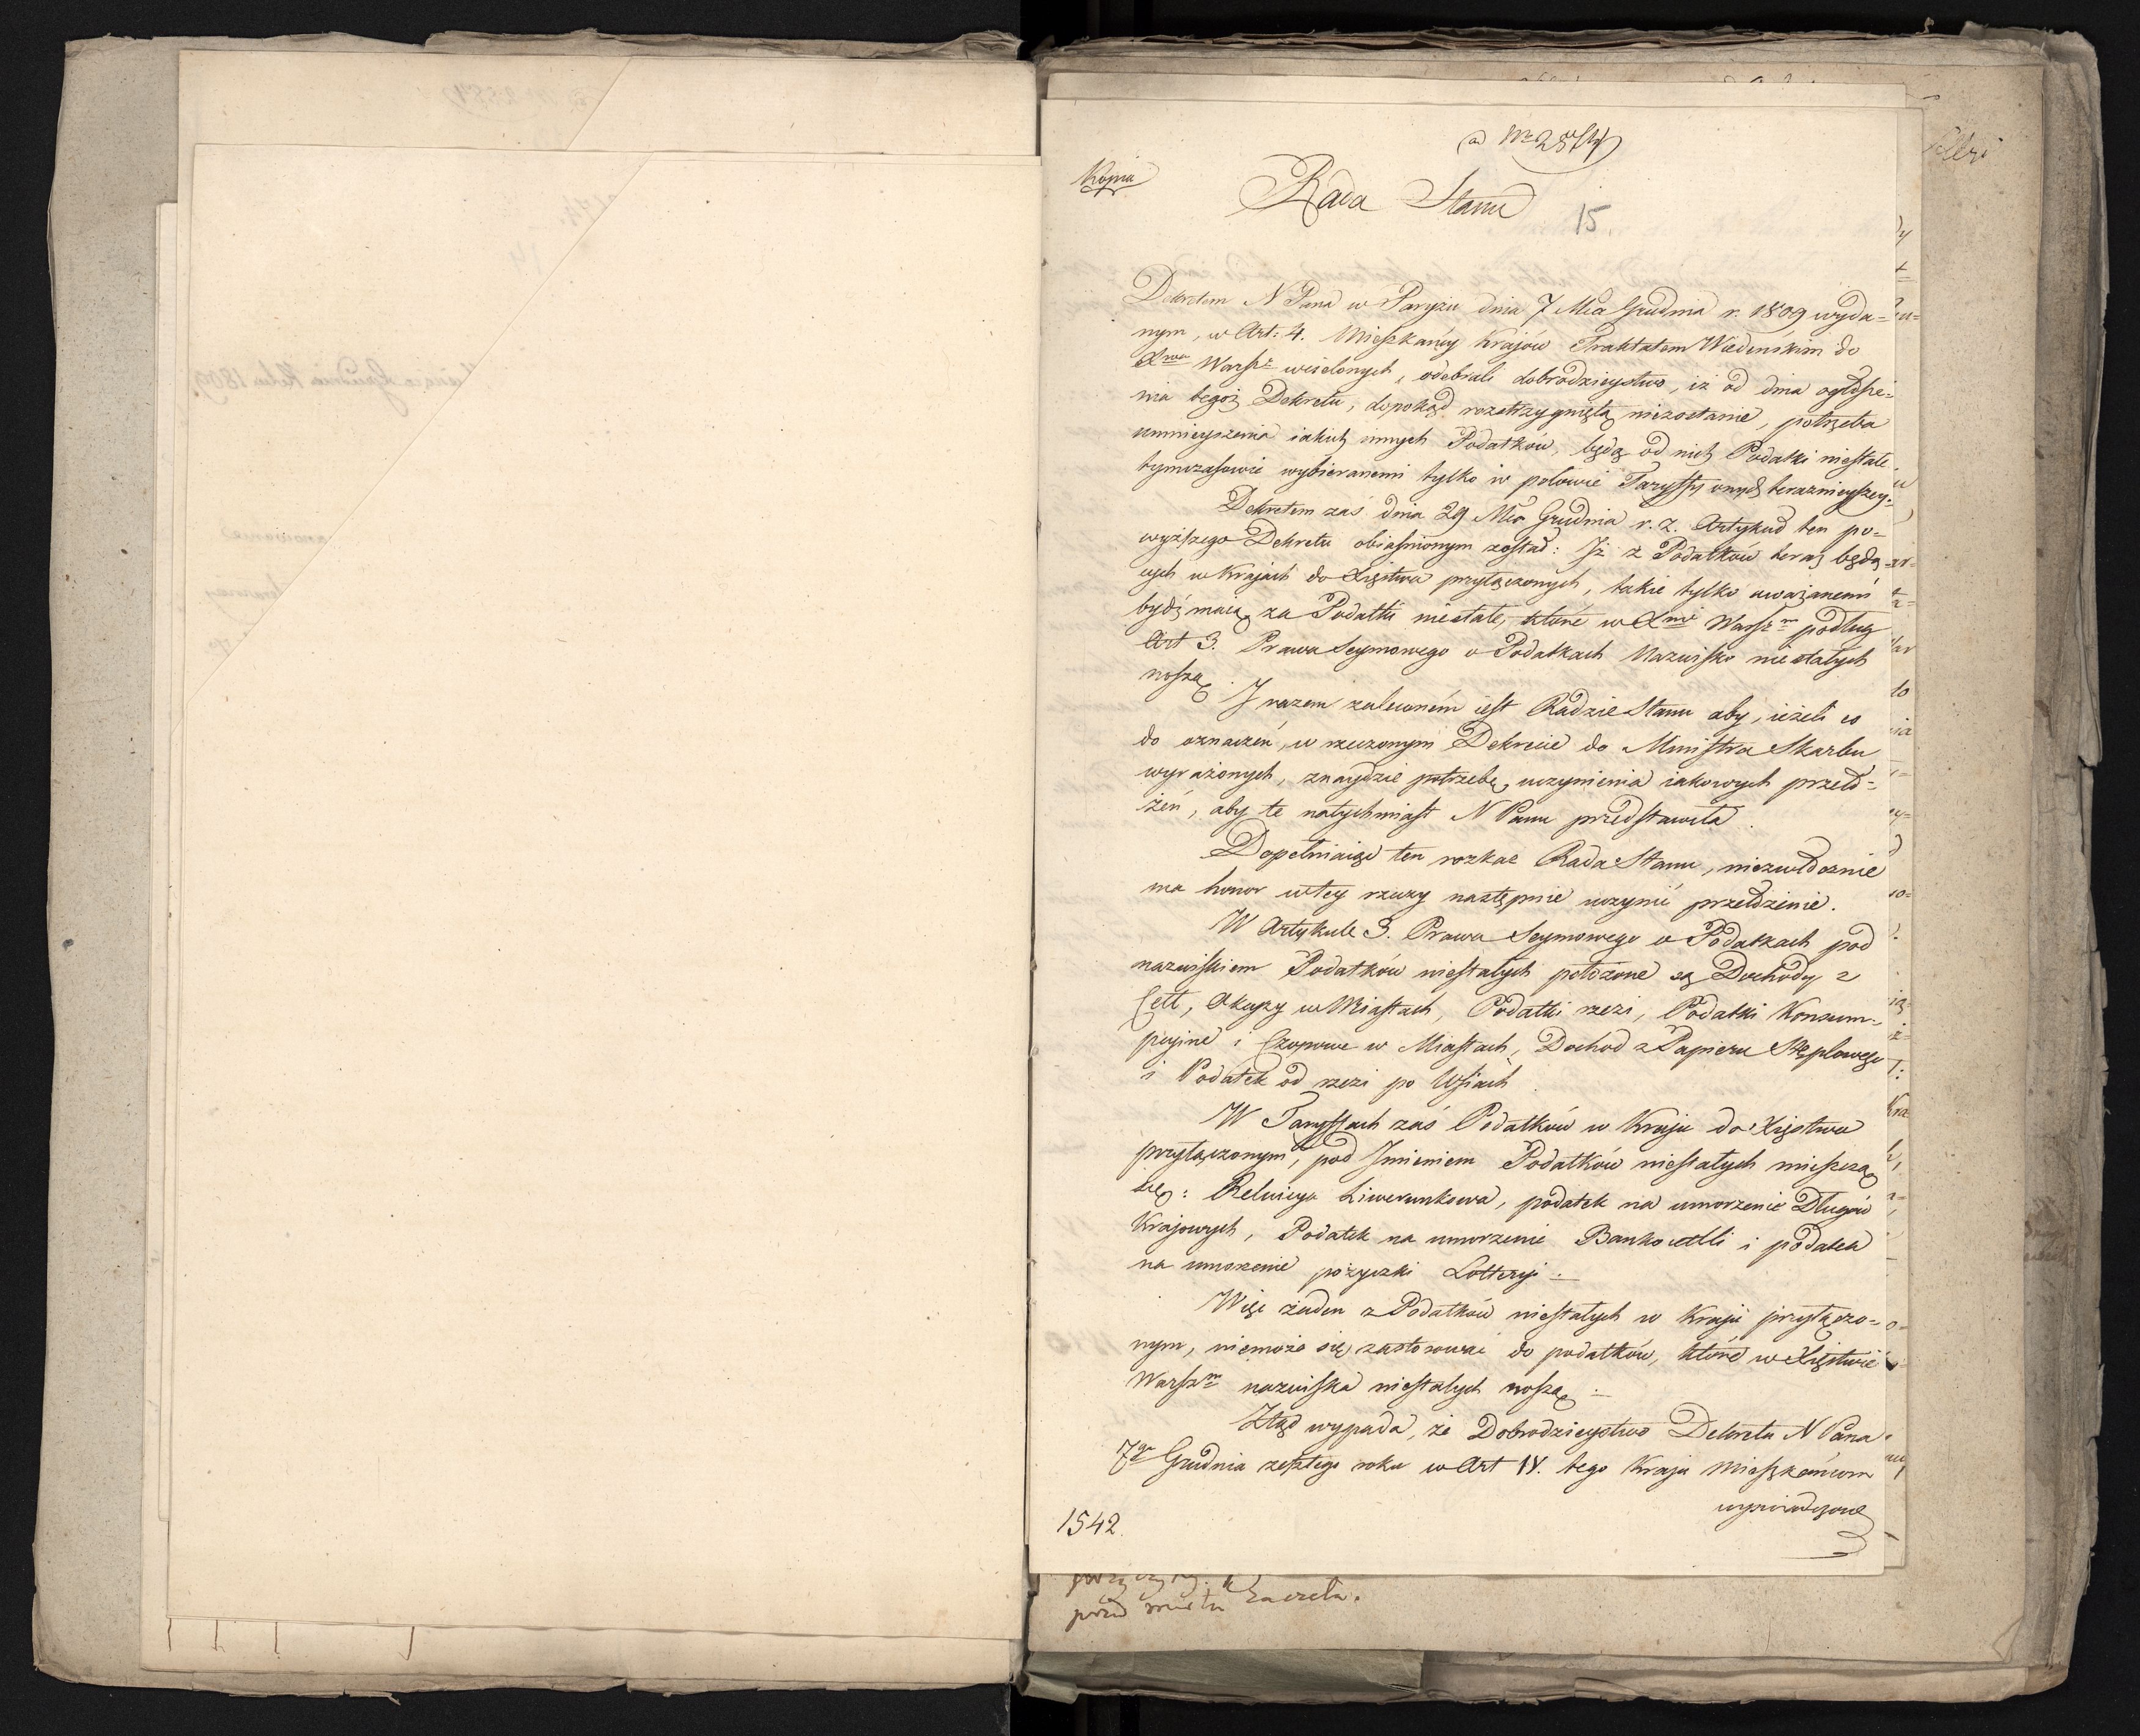 ad Nr 2584
Kopia
Rada Stanu
15.
Dekretem N Pana w Paryżu dnia 7 Mca Grudnia r. 1809 wyda=
nym, w Art: 4. Mieszkańcy Krajów Traktatem Wiedeńskim do
Xwa Warszo wcielonych, odebrali dobrodzieystwo, iż od dnia ogłosze=
nia tegoż Dekretu, dopokąd rozstrzygniętą niezostanie, potrzeba
umnieyszenia iakich innych Podatków, będą od nich Podatki niestałe
tymczasowie wybieranemi tylko w połowie Taryffy onych teraznieyszey.
Dekretem zaś dnia 29 Mca Grudnia r. z. Artykuł ten po=
wyższego Dekretu obiaśnionym został: Iż z Podatków teraz będą=
cych w Krajach do Xięstwa przyłączonych, takie tylko uważanemi
bydź maią za Podatki niestałe, które w Xwie Warszm podług
Art 3. Prawa Seymowego o Podatkach Nazwisko niestałych
noszą.
I razem zaleconém iest Radzie Stanu aby, ieżeli co
do oznaczeń, w rzeczonym Dekrecie do Ministra Skarbu
wyrażonych, znaydzie potrzebę uczynienia iakowych przeło=
żeń, aby te natychmiast N Panu przedstawiła.
Dopełniaiąc ten rozkaz Rada Stanu, niezwłocznie
ma honor w tey rzeczy następnie uczynić przełożenie.
W Artykule 3. Prawa Seymowego o Podatkach pod
nazwiskiem Podatków niestałych położone są Dochody z
Cell, Akcyzy w Miastach, Podatki rzezi, Podatki Konsum=
pcyine i Czopowe w Miastach, Dochod z Papieru Stęplowego
i Podatek od rzezi po Wsiach.
W Taryffach zaś Podatków w Kraju do Xięstwa
przyłączonym, pod Imieniem Podatków niestałych mieszczą
się: Relucya Liwerunkowa, podatek na umorzenie Długów
Krajowych, Podatek na umorzenie Bankocetli i podatek
na umorzenie pożyczki Lotteryi.
Więc żaden z Podatków niestałych w Kraju przyłączo=
nym, niemoże się zastosować do podatków, które w Xięstwie
Warszm nazwiska niestałych noszą.
Ztąd wypada, że Dobrodzieystwo Dekretu N Pana
7go Grudnia zeszłego roku w Art IV. tego Kraju Mieszkańcom
wyświadczone
1542.